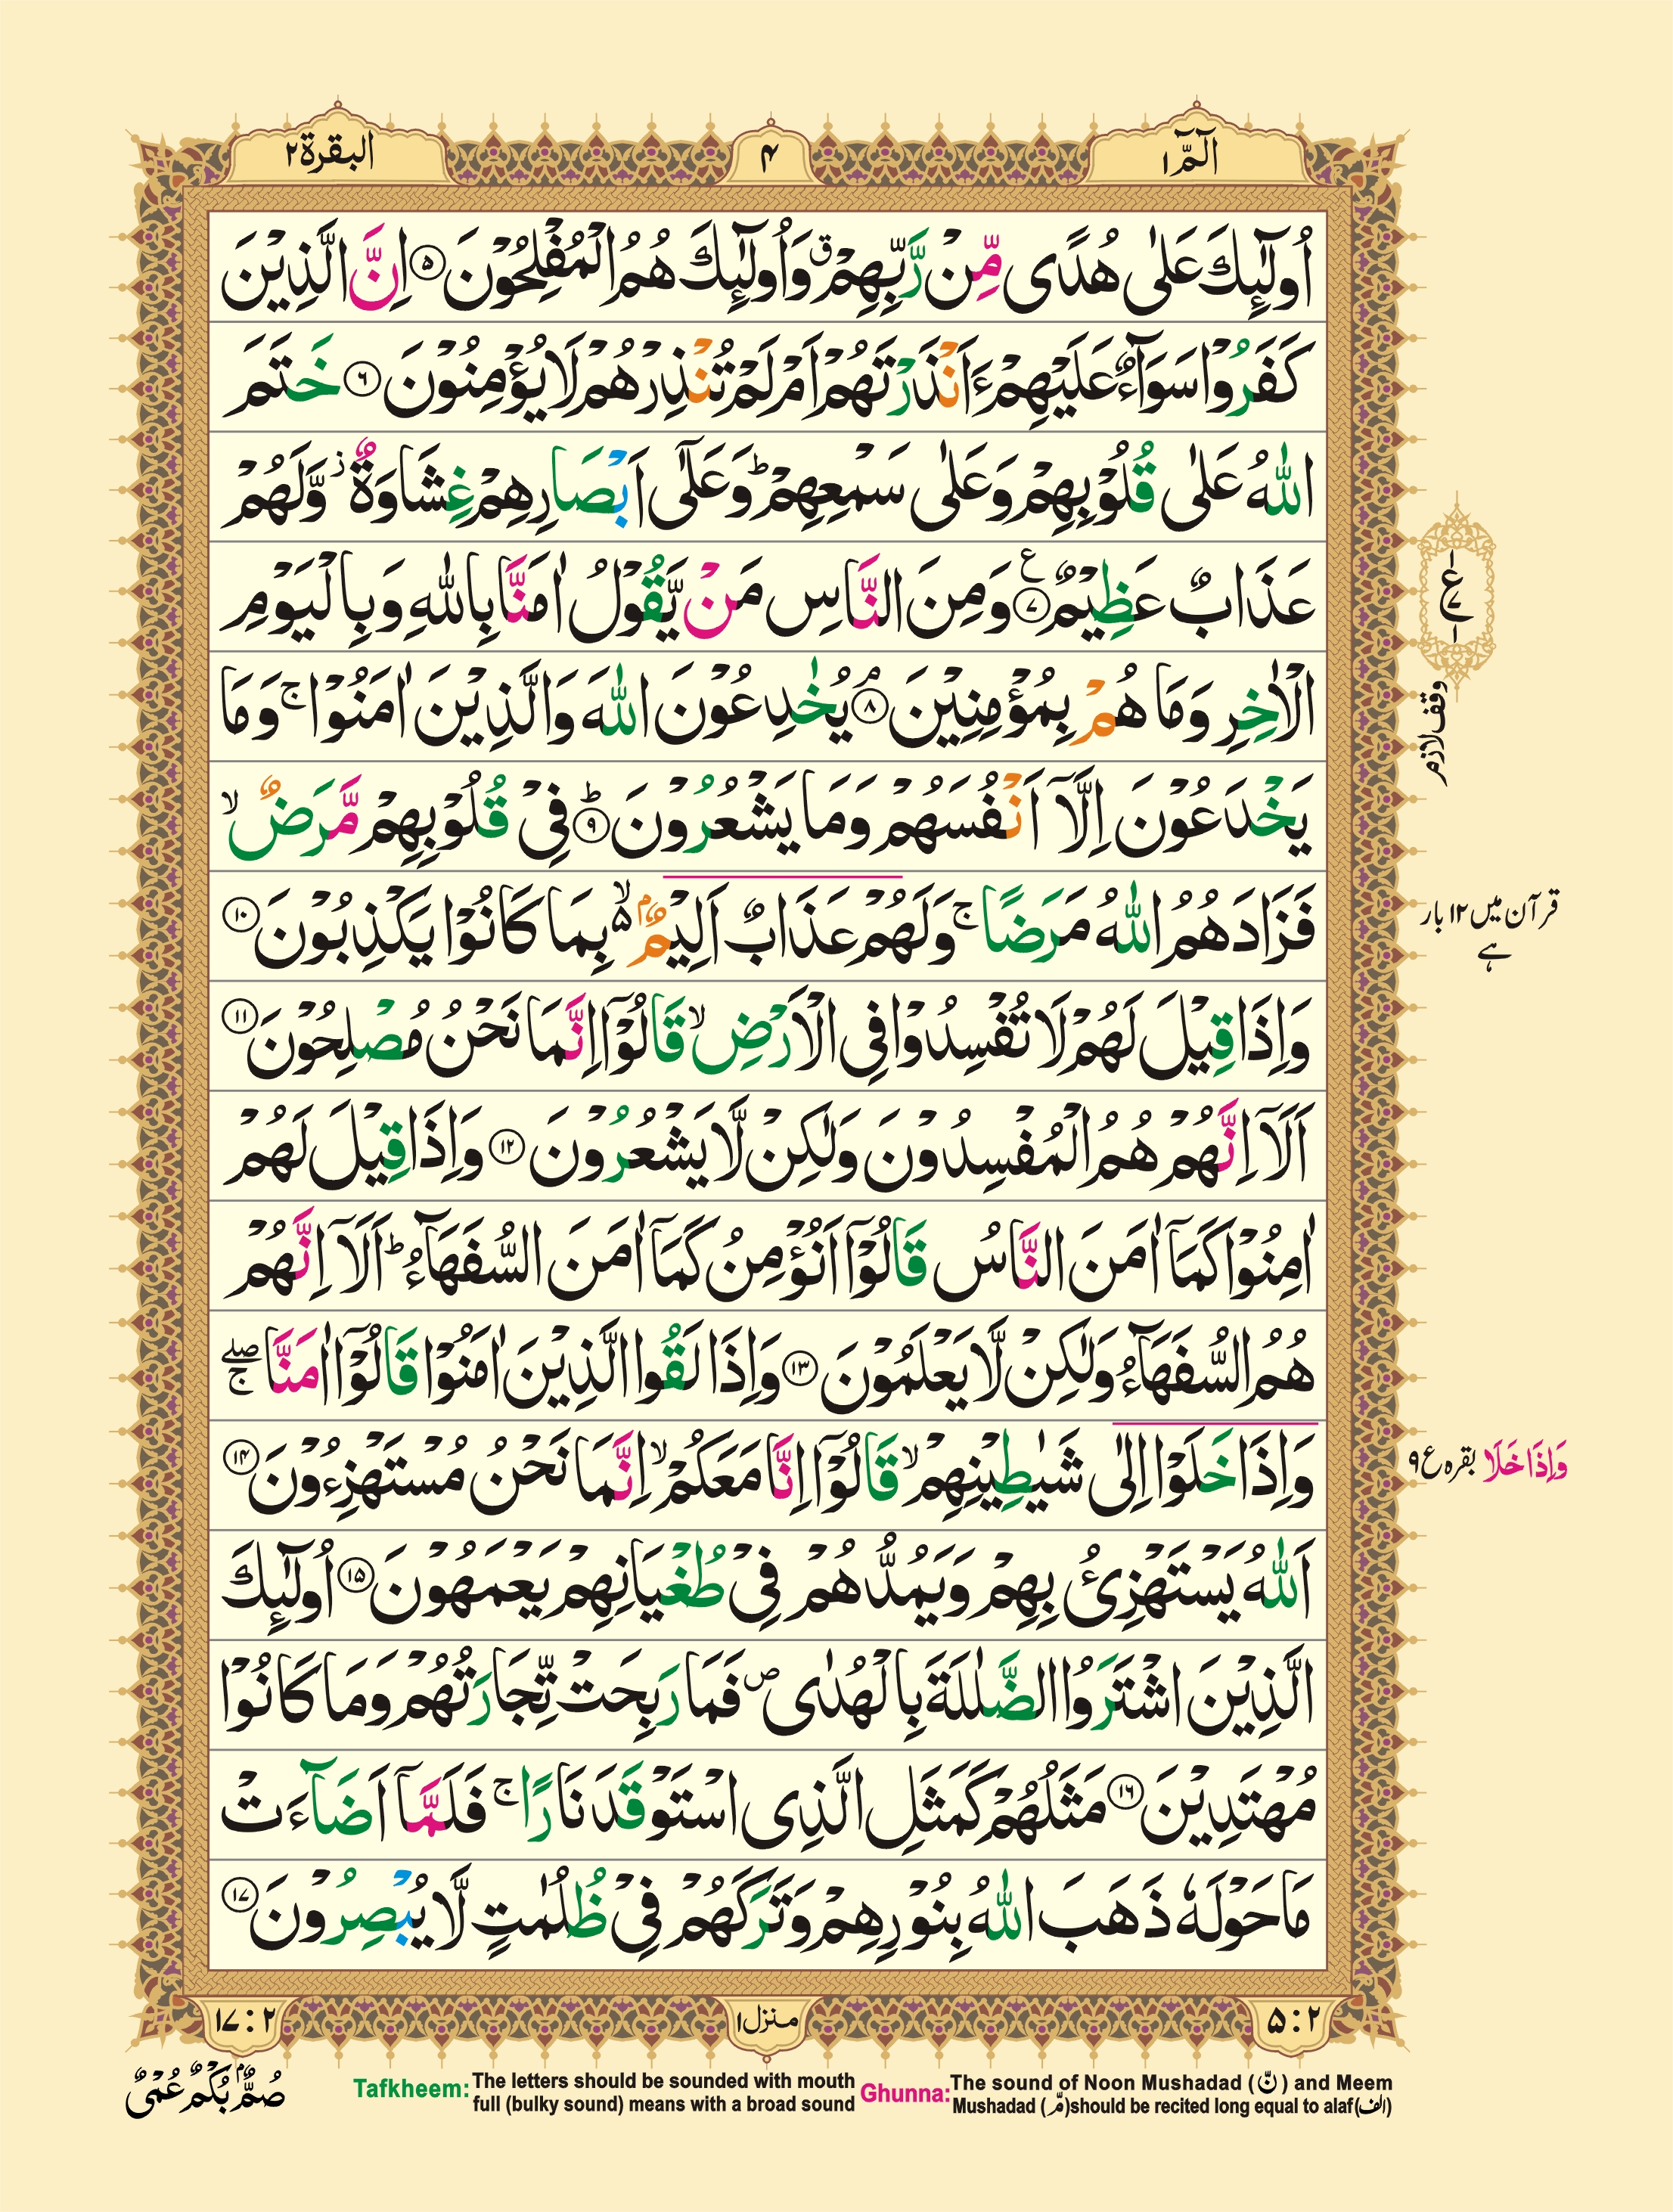 الٓمّٓ ١
۴
البقرة ٢
اُولٰٓئِكَ عَلٰى هُدًى مِّنْ رَّبِّهِمْ ۗ وَاُولٰٓئِكَ هُمُ الْمُفْلِحُوْنَ ۵ اِنَّ الَّذِيْنَ
كَفَرُوْا سَوَآءٌ عَلَيْهِمْ ءَاَنْذَرْتَهُمْ اَمْ لَمْ تُنْذِرْهُمْ لَا يُؤْمِنُوْنَ ۶ خَتَمَ
اللّٰهُ عَلٰى قُلُوْبِهِمْ وَعَلٰى سَمْعِهِمْ ؕ وَعَلٰٓى اَبْصَارِهِمْ غِشَاوَةٌ ز وَّلَهُمْ
عَذَابٌ عَظِيْمٌ ۷ ع وَمِنَ النَّاسِ مَنْ يَّقُوْلُ اٰمَنَّا بِاللّٰهِ وَبِالْيَوْمِ
الْاٰخِرِ وَمَا هُمْ بِمُؤْمِنِيْنَ ۘ ۸ يُخٰدِعُوْنَ اللّٰهَ وَالَّذِيْنَ اٰمَنُوْا ۚ وَمَا
يَخْدَعُوْنَ اِلَّآ اَنْفُسَهُمْ وَمَا يَشْعُرُوْنَ ؕ ۹ فِيْ قُلُوْبِهِمْ مَّرَضٌ ۙ
فَزَادَهُمُ اللّٰهُ مَرَضًا ۚ وَلَهُمْ عَذَابٌ اَلِيْمٌۢ ۵ ۙ بِمَا كَانُوْا يَكْذِبُوْنَ ۱۰
وَاِذَا قِيْلَ لَهُمْ لَا تُفْسِدُوْا فِى الْاَرْضِ ۙ قَالُوْٓا اِنَّمَا نَحْنُ مُصْلِحُوْنَ ۱۱
اَلَآ اِنَّهُمْ هُمُ الْمُفْسِدُوْنَ وَلٰكِنْ لَّا يَشْعُرُوْنَ ۱۲ وَاِذَا قِيْلَ لَهُمْ
اٰمِنُوْا كَمَآ اٰمَنَ النَّاسُ قَالُوْٓا اَنُؤْمِنُ كَمَآ اٰمَنَ السُّفَهَآءُ ؕ اَلَآ اِنَّهُمْ
هُمُ السُّفَهَآءُ وَلٰكِنْ لَّا يَعْلَمُوْنَ ۱۳ وَاِذَا لَقُوا الَّذِيْنَ اٰمَنُوْا قَالُوْٓا اٰمَنَّا ۖۚ
وَاِذَا خَلَوْا اِلٰى شَيٰطِيْنِهِمْ ۙ قَالُوْٓا اِنَّا مَعَكُمْ ۙ اِنَّمَا نَحْنُ مُسْتَهْزِءُوْنَ ۱۴
اَللّٰهُ يَسْتَهْزِئُ بِهِمْ وَيَمُدُّهُمْ فِيْ طُغْيَانِهِمْ يَعْمَهُوْنَ ۱۵ اُولٰٓئِكَ
الَّذِيْنَ اشْتَرَوُا الضَّلٰلَةَ بِالْهُدٰى ص فَمَا رَبِحَتْ تِّجَارَتُهُمْ وَمَا كَانُوْا
مُهْتَدِيْنَ ۱۶ مَثَلُهُمْ كَمَثَلِ الَّذِى اسْتَوْقَدَ نَارًا ۚ فَلَمَّآ اَضَآءَتْ
مَا حَوْلَهٗ ذَهَبَ اللّٰهُ بِنُوْرِهِمْ وَتَرَكَهُمْ فِيْ ظُلُمٰتٍ لَّا يُبْصِرُوْنَ ۱۷
۱
ع
۷
۱
وقف لازم
قرآن میں ۱۲ بار
ہے
وَاِذَا خَلَا بقرہ ع ۹
۲ : ۵
منزل ۱
۲ : ۱۷
صُمٌّۢ بُكْمٌ عُمْىٌ
Tafkheem: The letters should be sounded with mouth
full (bulky sound) means with a broad sound
Ghunna: The sound of Noon Mushadad (نّ) and Meem
Mushadad (مّ) should be recited long equal to alaf (الف)